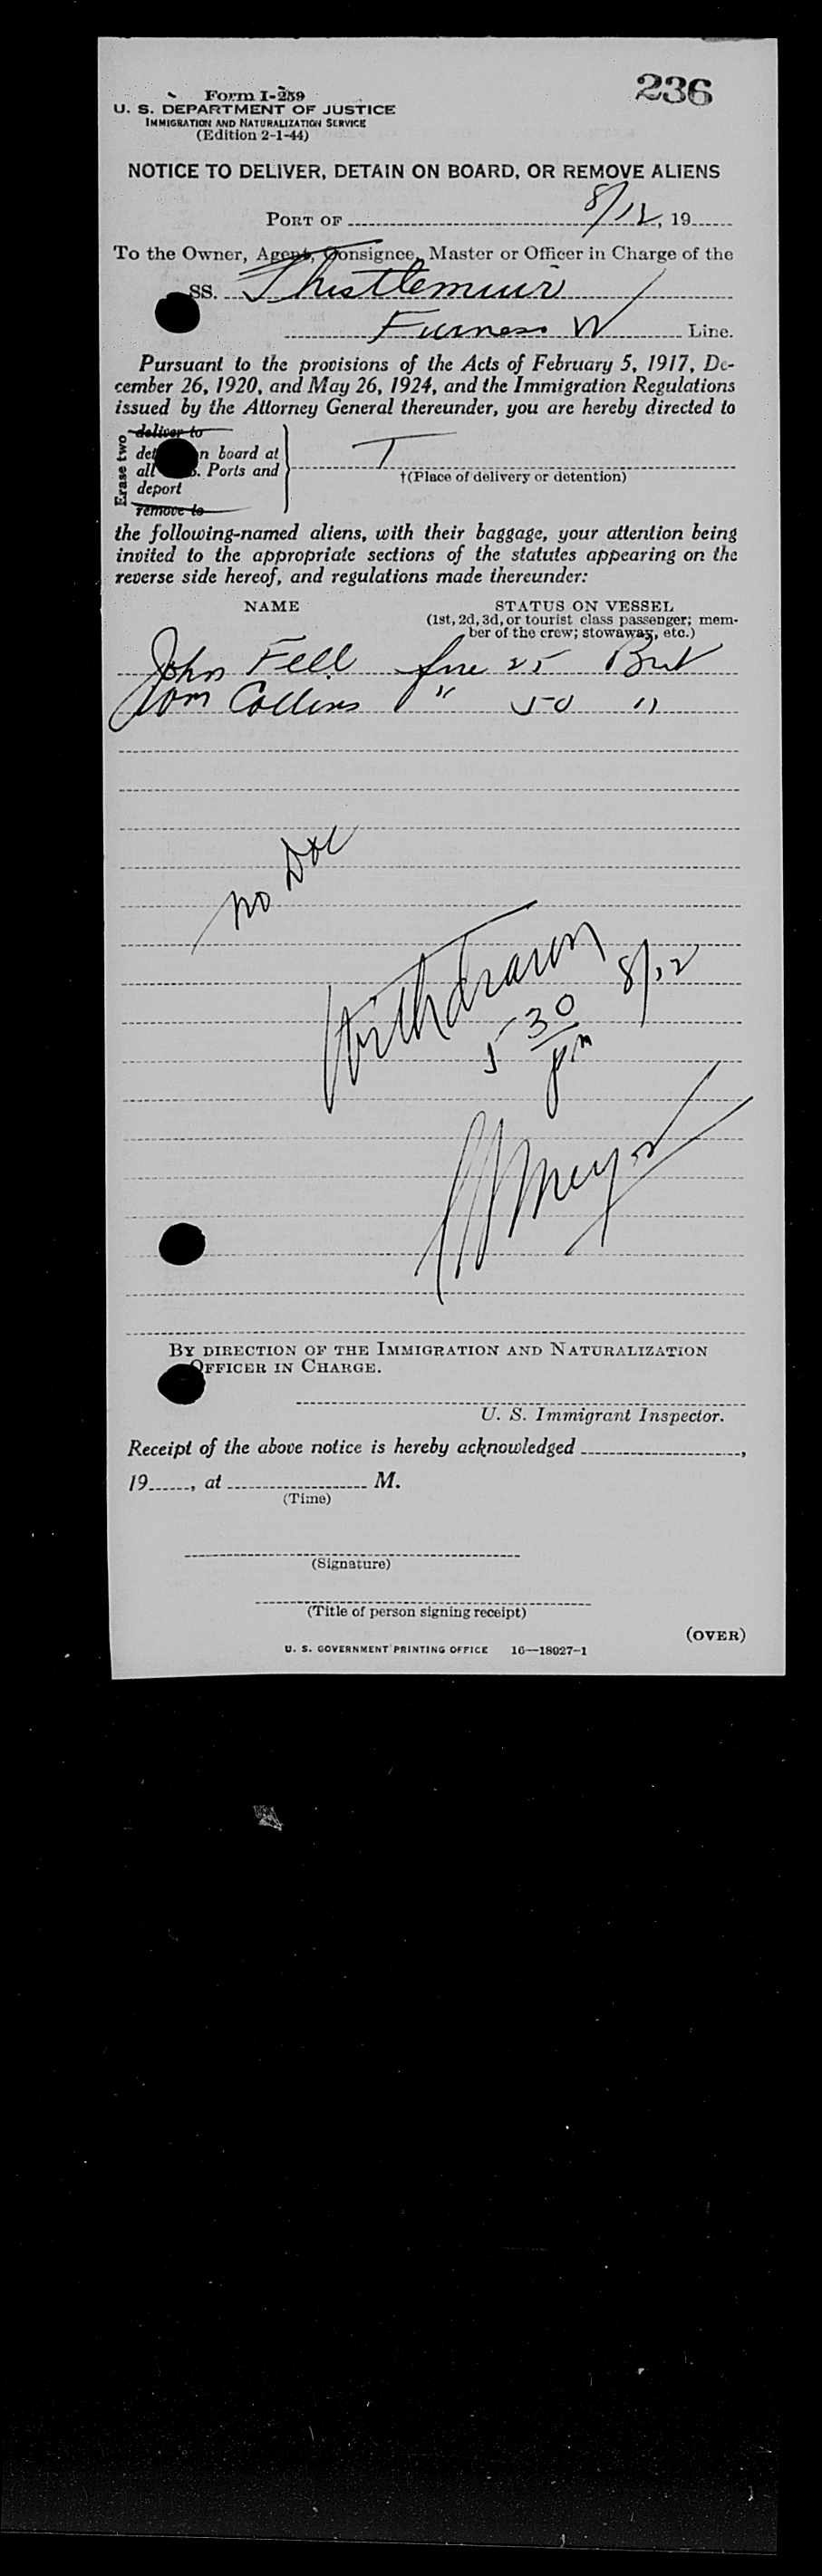 236
Form I-259
U. S. DEPARTMENT OF JUSTICE
IMMIGRATION AND NATURALIZATION SERVICE
(Edition 2-1-44)
NOTICE TO DELIVER, DETAIN ON BOARD, OR REMOVE ALIENS
PORT OF 8/12, 19
To the Owner, Agent, Consignee, Master or Officer in Charge of the
SS. Thistlemuir
Furness W Line.
Pursuant to the provisions of the Acts of February 5, 1917, De-
cember 26, 1920, and May 26, 1924, and the Immigration Regulations
issued by the Attorney General thereunder, you are hereby directed to
Erase two
deliver to
n board at
all . Ports and
deport
remove to
†(Place of delivery or detention)
the following-named aliens, with their baggage, your attention being
invited to the appropriate sections of the statutes appearing on the
reverse side hereof, and regulations made thereunder:
NAME STATUS ON VESSEL
(1st, 2d, 3d, or tourist class passenger; mem-
ber of the crew; stowaway, etc.)
John Fell fire 25 Brit
Tom Collins " 50 "
no Doc
Withdrawn 8/12
5 30 pm
Meyer
BY DIRECTION OF THE IMMIGRATION AND NATURALIZATION
OFFICER IN CHARGE.
U. S. Immigrant Inspector.
Receipt of the above notice is hereby acknowledged ,
19 , at M.
(Time)
(Signature)
(Title of person signing receipt)
(OVER)
U. S. GOVERNMENT PRINTING OFFICE 16—18027-1